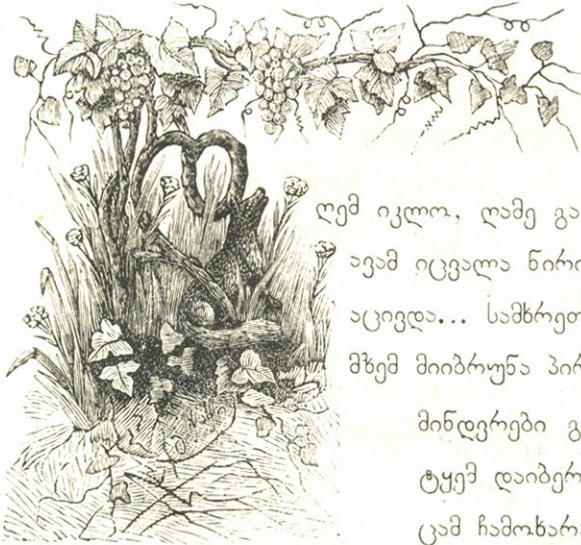 ღემ იკლო, ღამე გა
ავამ იცვალა ნირი
აცივდა... სამხრეთ
მზემ მიიბრუნა პირ
მინდვრები გ
ტყემ დაიბერ
ცამ ჩამოხარ